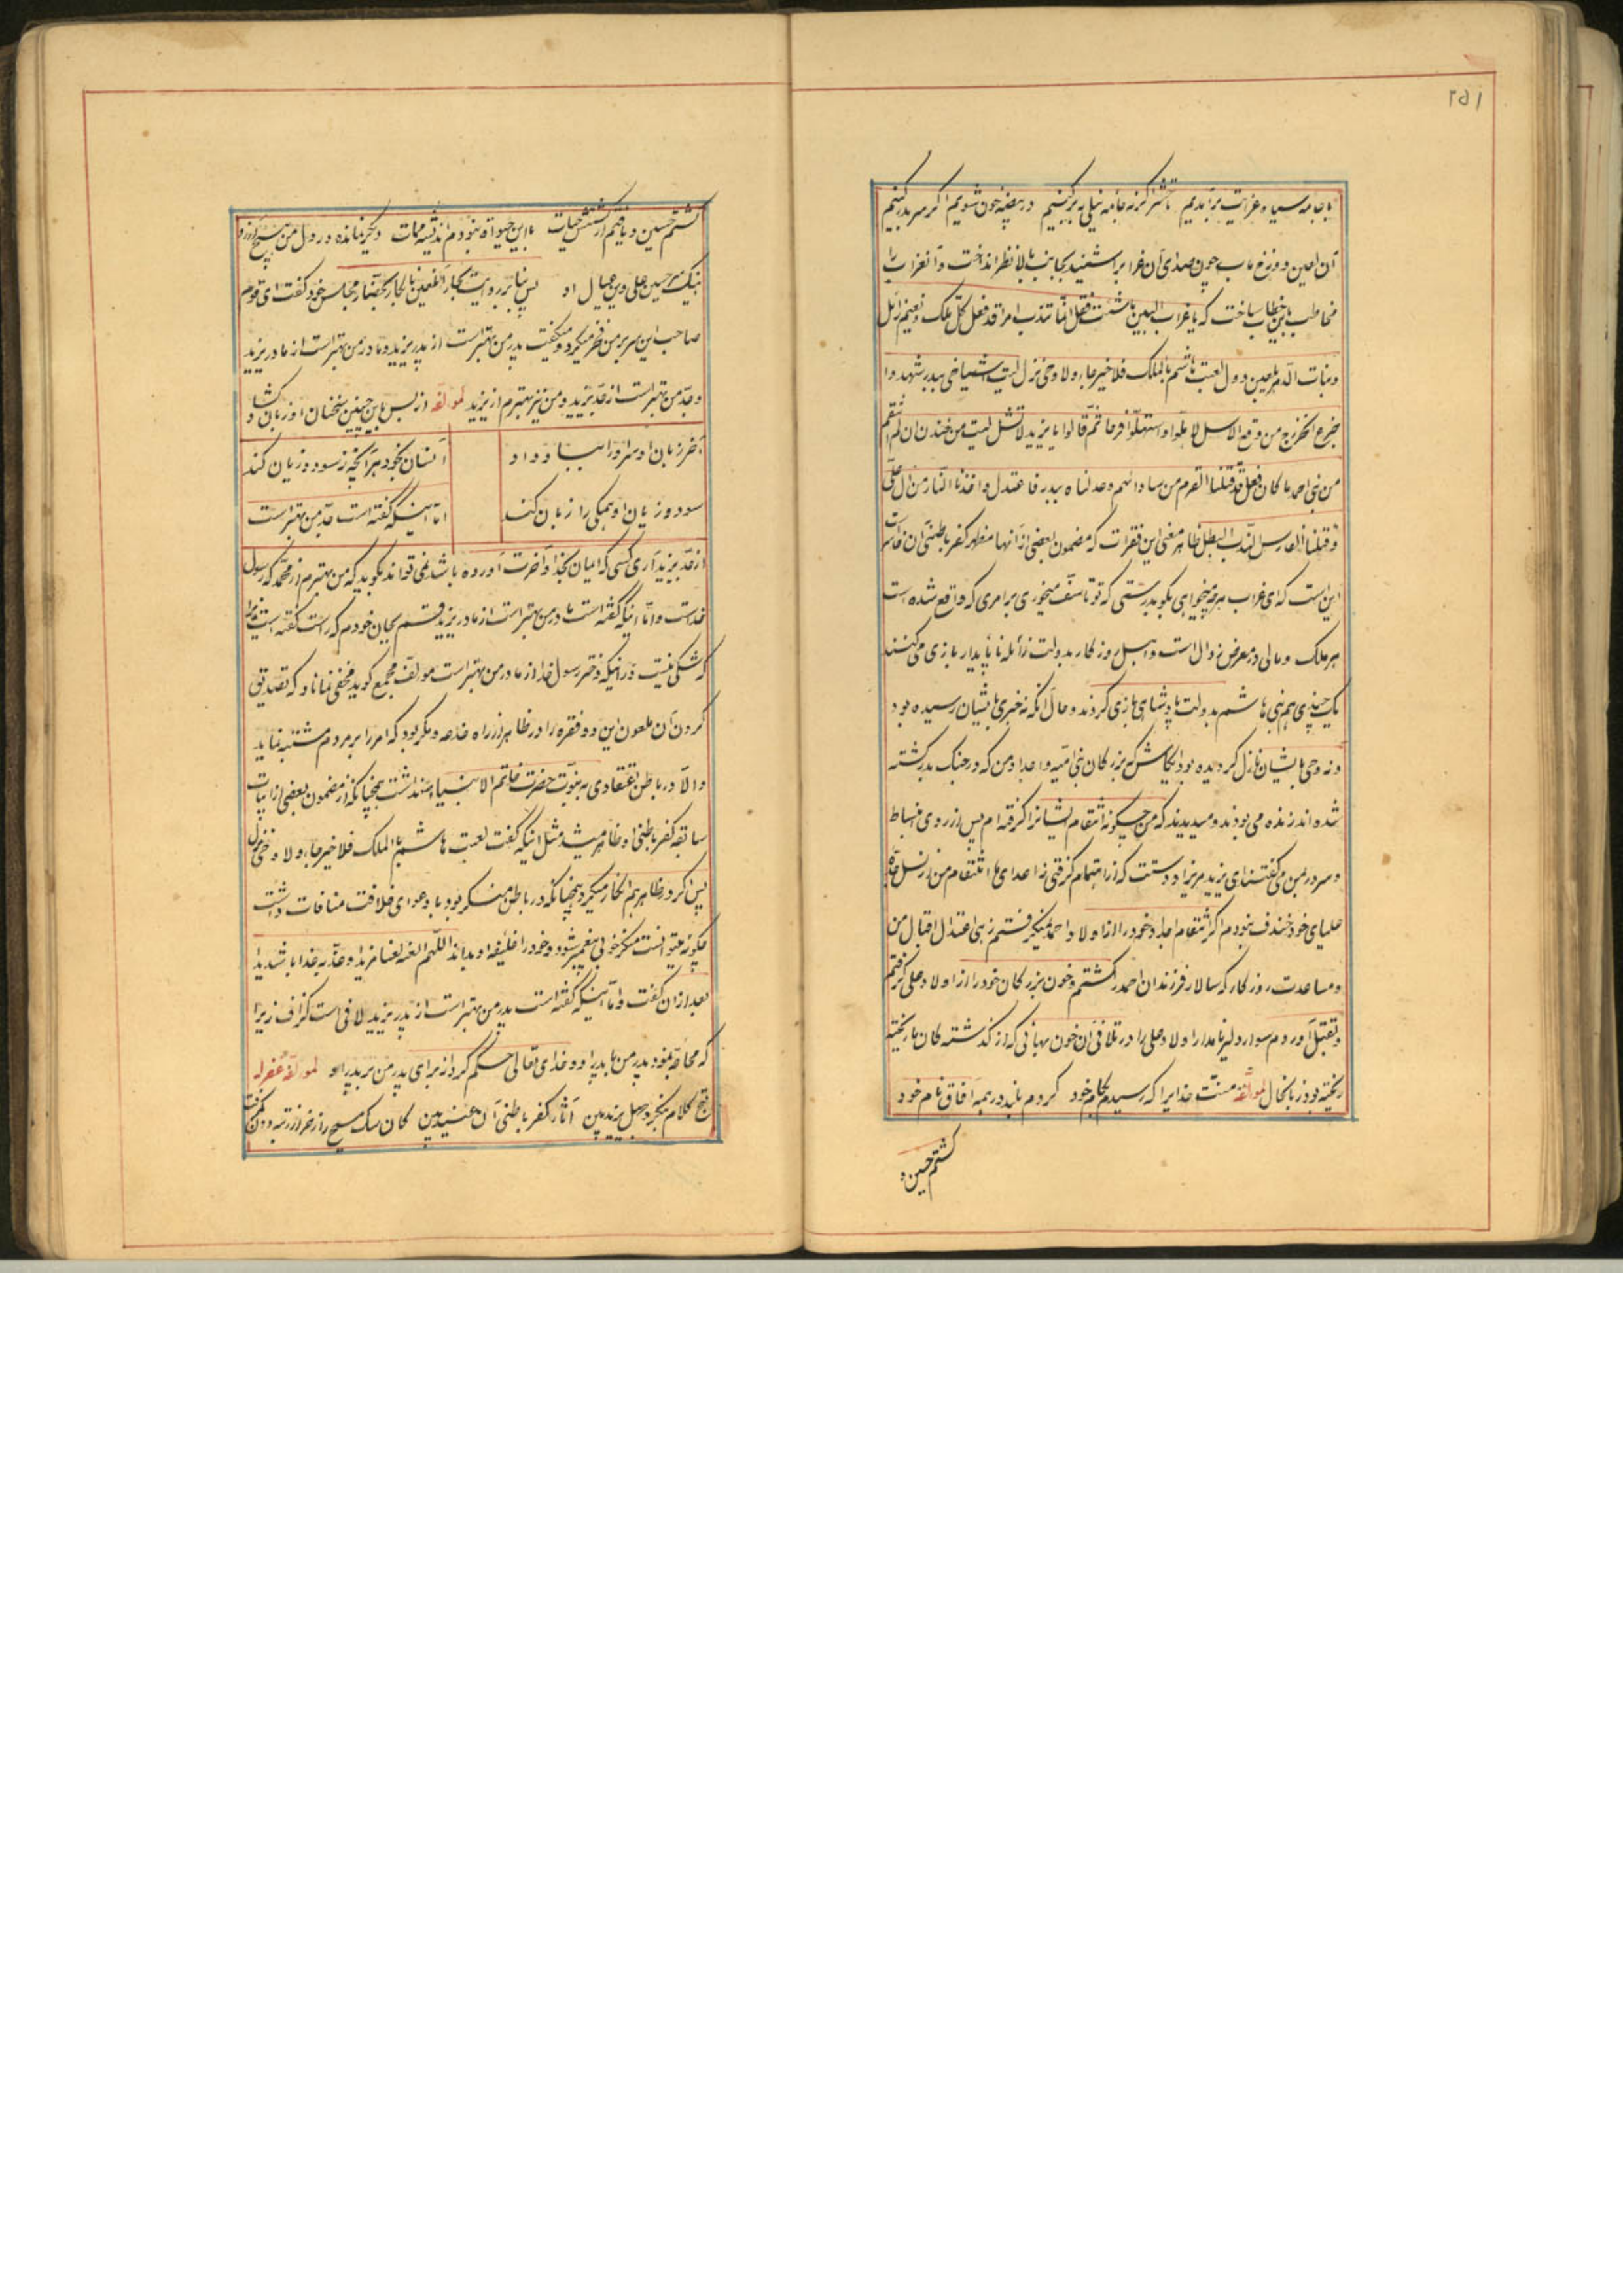 ۲۵۱
با جامه سیاه عزایت برآمدیم تا حشر کر نه جامه نیلی به برکنیم در بیضه خون شویم اگر سر بدر کنیم
آن لعین دوزخ ماب چون صدای آن غراب را شنید بجانب بالا نظر انداخت و آنغراب را
مخاطب باین خطاب ساخت که یا غراب البین ما شئت فقل انما تندب امرا قد فعل کل ملک و نعیم زائل
و بنات الدهر یلعبن بکل لعبت هاشم بالملک فلا خبر جاء ولا وحی نزل لیت اشیاخی ببدر شهدوا
جزع الخزرج من وقع الاسل لاهلوا واستهلوا فرحا ثم قالوا یا یزید لا تشل لست من خندف ان لم انتقم
من بنی احمد ما کان فعل قد قتلنا القرم من ساداتهم وعدلناه ببدر فاعتدل و اخذنا الثار من آل علی
و قتلنا الفارس اللیث البطل ظاهر معنی این فقرات که مضمون بعضی از آنها مظهر کفر باطنی آن
این است که ای غراب هرچه میخواهی بگو بدرستی که تو تاسف میخوری بر امری که واقع شده است
هر ملک و مالی در معرض زوال است و اهل روزکار بدولت زائله ناپایدار بازی میکنند
یک چندی هم بنی هاشم بدولت پادشاهی بازی کردند و حال آنکه نه خبری بایشان رسیده بود
و نه وحی بایشان نازل کردیده بود ایکاش که بزرکان بنی امیه و اجداد من که در جنک بدر کشته
شده اند زنده می بودند و میدیدند که من چکونه انتقام ایشانرا کرفته ام پس از روی انبساط
و سرور بمن می گفتند ای یزید مریزاد دستت که از اهتمام کرفتی ز اعدای ما انتقام من از نسل
علیای خود خندف نبودم اکر انتقام اجداد خود را از اولاد احمد نمیکرفتم زهی اعتدال اقبال من
و مساعدت روزکار که سالار فرزندان احمد را کشتم و خون بزرکان خود را از اولاد علی کرفتم
و بقتل آوردم سوار دلیر نامدار اولاد علی را در تلافی آن خون بهائی که از کذشته کان ما ریخته
ریخته بود ز بانحال لمولفه منت خدایرا که رسیدم بکام خود کردم بلند در همه آفاق نام خود
کشتم حسین و
کشتم حسین و یافتم از کشتنش حیات با این حیوة نبودم اندیشه ممات دیکر نمانده در دل من هیچ آرزو
اینک سر حسین علی و این عیال او پس بنا بر روایت بحار آن لعین نابکار بحضار مجلس خود کفت ای قوم
صاحب این سر بر من فخر میکرد و میکفت پدر من بهتر است از پدر یزید و مادر من بهتر است از مادر یزید
و جد من بهتر است از جد یزید و من نیز بهترم از یزید لمولفه از بس باین چنین سخنان او زبان کشاد
آخر زبان او سر او را بباد داد انسان بخود هر آنچه ز سود و زیان کند
سود و زیان او همکی را زبان کند اما اینکه کفته است جد من بهتر است
از جد یزید آری کسی که ایمان بخدا و آخرت آورده باشد نمی تواند بکوید که من بهترم از محمد که رسول
خداست و اما اینکه کفته است مادر من بهتر است از مادر یزید قسم بجان خودم که راست کفته است زیرا
که شکی نیست در اینکه دختر رسول خدا از مادر من بهتر است مولف مجمع کوید مخفی نماناد که تصدیق
کردن آن ملعون این دو فقره را در ظاهر از راه خدعه و مکر بود که امر را بر مردم مشتبه نماید
والا در باطن اعتقادی به نبوت حضرت خاتم الانبیاء نداشت همچنانکه از مضمون بعضی از ابیات
سابقه کفر باطنی او ظاهر میشد مثل اینکه کفت لعبت هاشم بالملک فلا خبر جاء ولا وحی نزل
پس اکر در ظاهر هم انکار میکرد همچنانکه در باطن منکر بود با دعوای خلافت منافات داشت
چکونه میتوانست منکر پیغمبر شود و خود را خلیفه او بداند اللهم العنه لعنا مزیدا و عذبه عذابا شدیدا
بعد از آن کفت و اما اینکه کفته است پدر من بهتر است از پدر یزید لافی است کزاف زیرا
که محاجه نمود پدر من با پدر او و خدای تعالی حکم کرد از برای پدر من بر پدر او لمولفه غفر له
کلام جهل یزید بین آثار کفر باطنی آن عنید بین